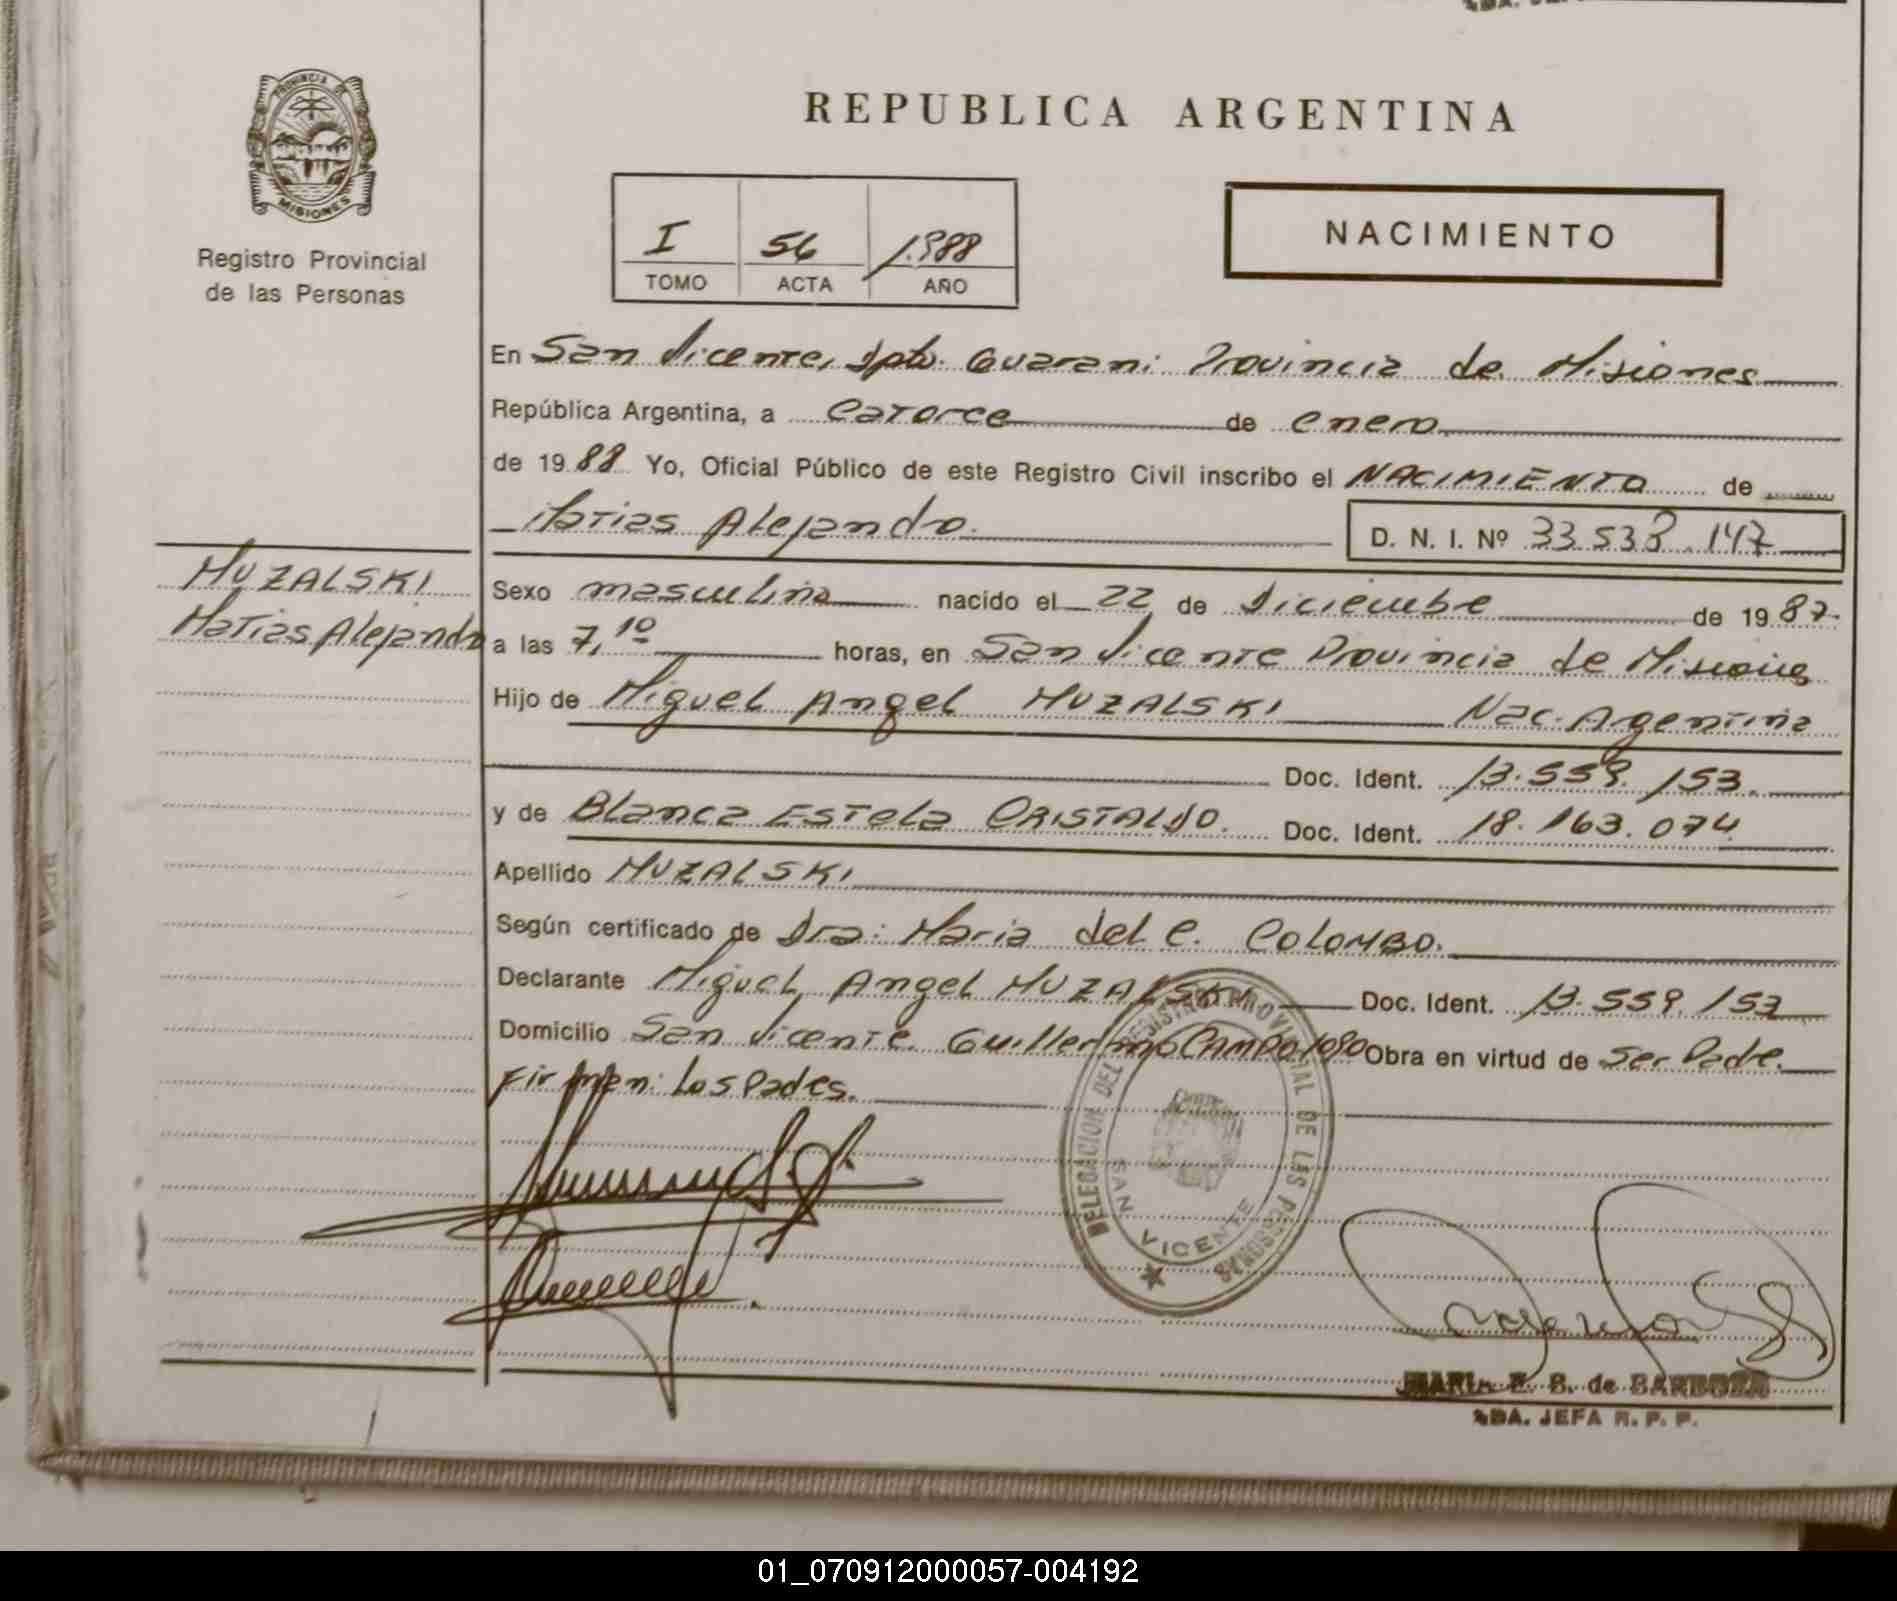 PROVINCIA DE
MISIONES
Registro Provincial
de las Personas
REPUBLICA ARGENTINA
I 56 1.988
TOMO ACTA AÑO
NACIMIENTO
En San Vicente, Dpto. Guarani Provincia de Misiones
República Argentina, a Catorce de enero
de 1988 Yo, Oficial Público de este Registro Civil inscribo el NACIMIENTO de
Matias Alejandro. D. N. I. Nº 33.538.147
MUZALSKI
Matias Alejandro
Sexo masculino nacido el 22 de Diciembre de 1987.
a las 7,10 horas, en San Vicente Provincia de Misiones
Hijo de Miguel Angel MUZALSKI Nac. Argentina
Doc. Ident. 13.559.153.
y de Blanca Estela CRISTALDO. Doc. Ident. 18.163.074
Apellido MUZALSKI
Según certificado de Dra: Maria del C. COLOMBO.
Declarante Miguel Angel MUZALSKI Doc. Ident. 13.559.153
Domicilio San Vicente. Guillermo CAMPO 1090 Obra en virtud de Ser Padre.
Firman: Los Padres.
DELEGACION DEL REGISTRO PROVINCIAL DE LAS PERSONAS
SAN VICENTE
MARIA E. B. de BARBOZA
2DA. JEFA R. P. P.
01_070912000057-004192